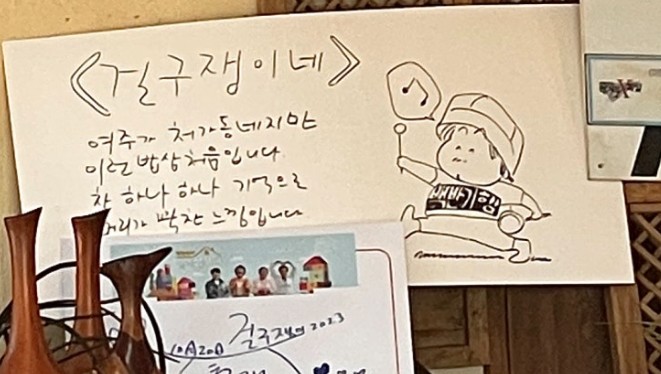 <걸구쟁이네>
여주가 처가동네지만
이런 밥상 처음입니다.
찬 하나 하나 기억으로
머리가 꽉찬 느낌입니다
백반기행
걸구쟁이 2023
10월20日